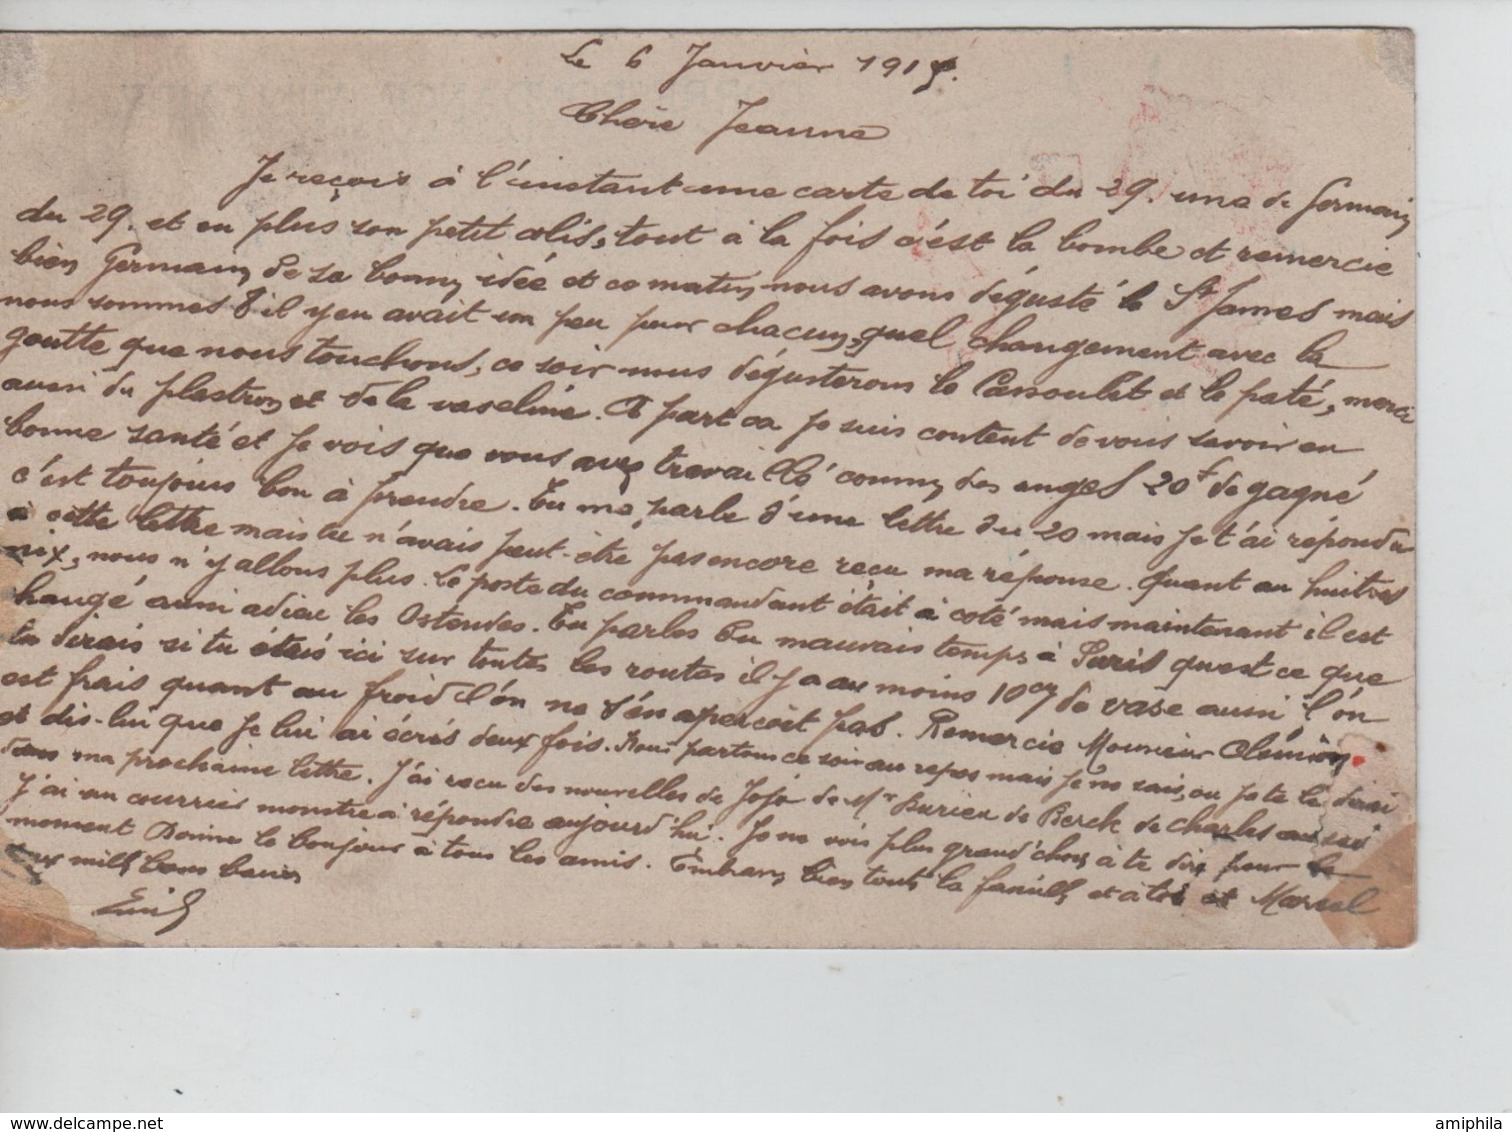 Le 6 Janvier 1915.
Chère Jeanne
Je reçois à l'instant une carte de toi du 29. une de Germain
du 29. et en plus son petit colis, tout à la fois c'est la bombe et remercie
bien Germain de sa bonne idée et ce matin nous avons dégusté le St James mais
nous sommes 8 il y en avait un peu pour chacun, quel changement avec la
goutte que nous touchons, ce soir nous dégusterons le Cassoulet et le paté, merci
aussi du plastron et de la vaseline. A part ca je suis content de vous savoir en
bonne santé et je vois que vous avez travaillé comme des anges 20f de gagné
c'est toujours bon à prendre. Tu me parle d'une lettre du 20 mais je t'ai répondu
a cette lettre mais tu n'avais peut-être pas encore recu ma réponse. Quant au huitres
nix, nous n'y allons plus. Le poste du commandant était à coté mais maintenant il est
hangé aussi adieu les Ostendes. Tu parles du mauvais temps à Paris quest ce que
tu dirais si tu étais ici sur toutes les routes il y a au moins 10cm de vase aussi l'on
est frais quant au froid l'on ne s'en apercoit pas. Remercie Monsieur
et dis-lui que je lui ai écris deux fois. Nous partons ce soir au repos mais je ne sais, ou je te le dirai
dans ma prochaine lettre. J'ai recu des nouvelles de Jojo de Mr Burien de Berck de Charles
J'ai un courrier monstre à répondre aujourd'hui. Je ne vois plus grand chose à te dire pour le
moment Donne le bonjour à tous les amis. Embrasse bien toute la famille et à toi et Marcel
mille bons baisers
Emile
amiphila